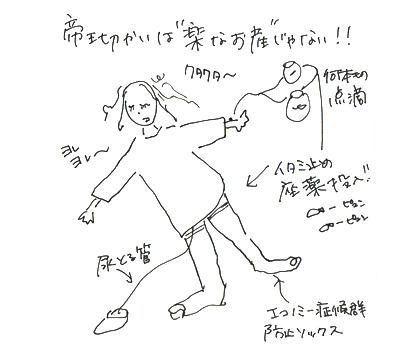 帝王切かいは"楽なお産"じゃない!!
ワタワタ～
何本もの
点滴
ヨレ
ヨレ～
イタミ止め
座薬投入!!
ピュン
ピュン
尿とる管
エコノミー症候群
防止ソックス